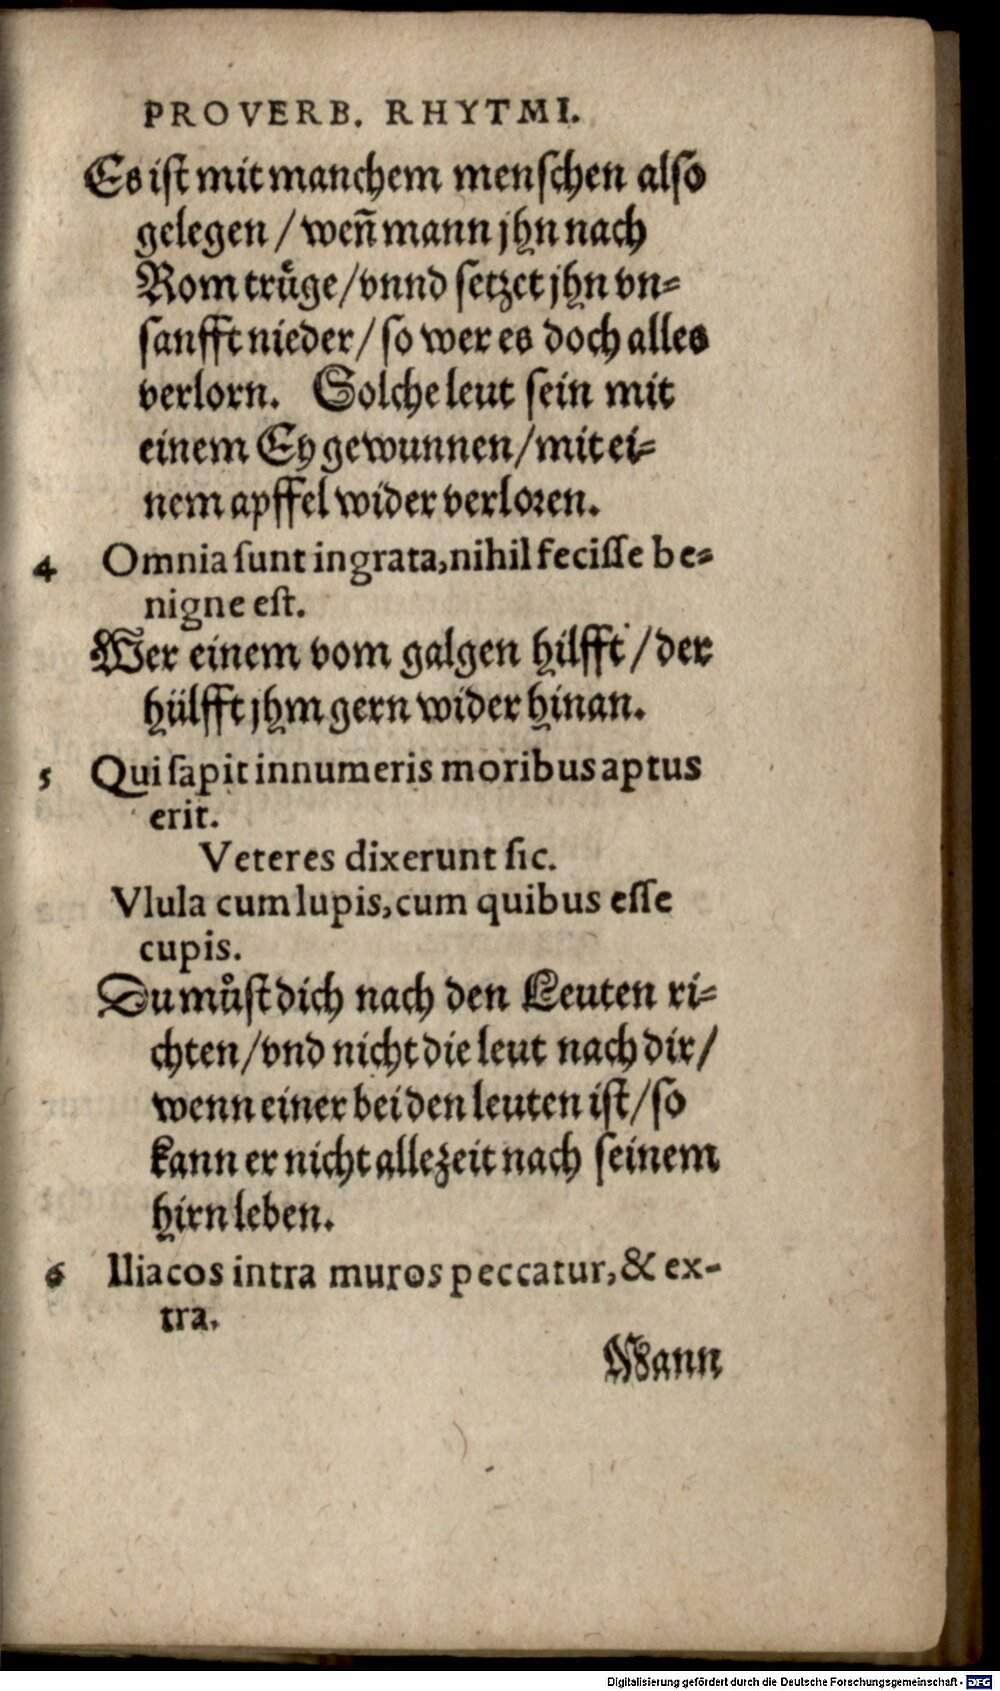 PROVERB. RHYTMI.
Es ist mit manchem menschen also
gelegen / weñ mann jhn nach
Rom trůge / vnnd setzet jhn vn=
sanfft nieder / so wer es doch alles
verlorn. Solche leut sein mit
einem Ey gewunnen / mit ei=
nem apffel wider verloren.
4 Omnia sunt ingrata, nihil fecisse be=
nigne est.
Wer einem vom galgen hilfft / der
hülfft jhm gern wider hinan.
5 Qui sapit innumeris moribus aptus
erit.
Veteres dixerunt sic.
Vlula cum lupis, cum quibus esse
cupis.
Du můst dich nach den Leuten ri=
chten / vnd nicht die leut nach dir /
wenn einer bei den leuten ist / so
kann er nicht allezeit nach seinem
hirn leben.
6 Iliacos intra muros peccatur, & ex-
tra.
Mann
Digitalisierung gefördert durch die Deutsche Forschungsgemeinschaft - DFG